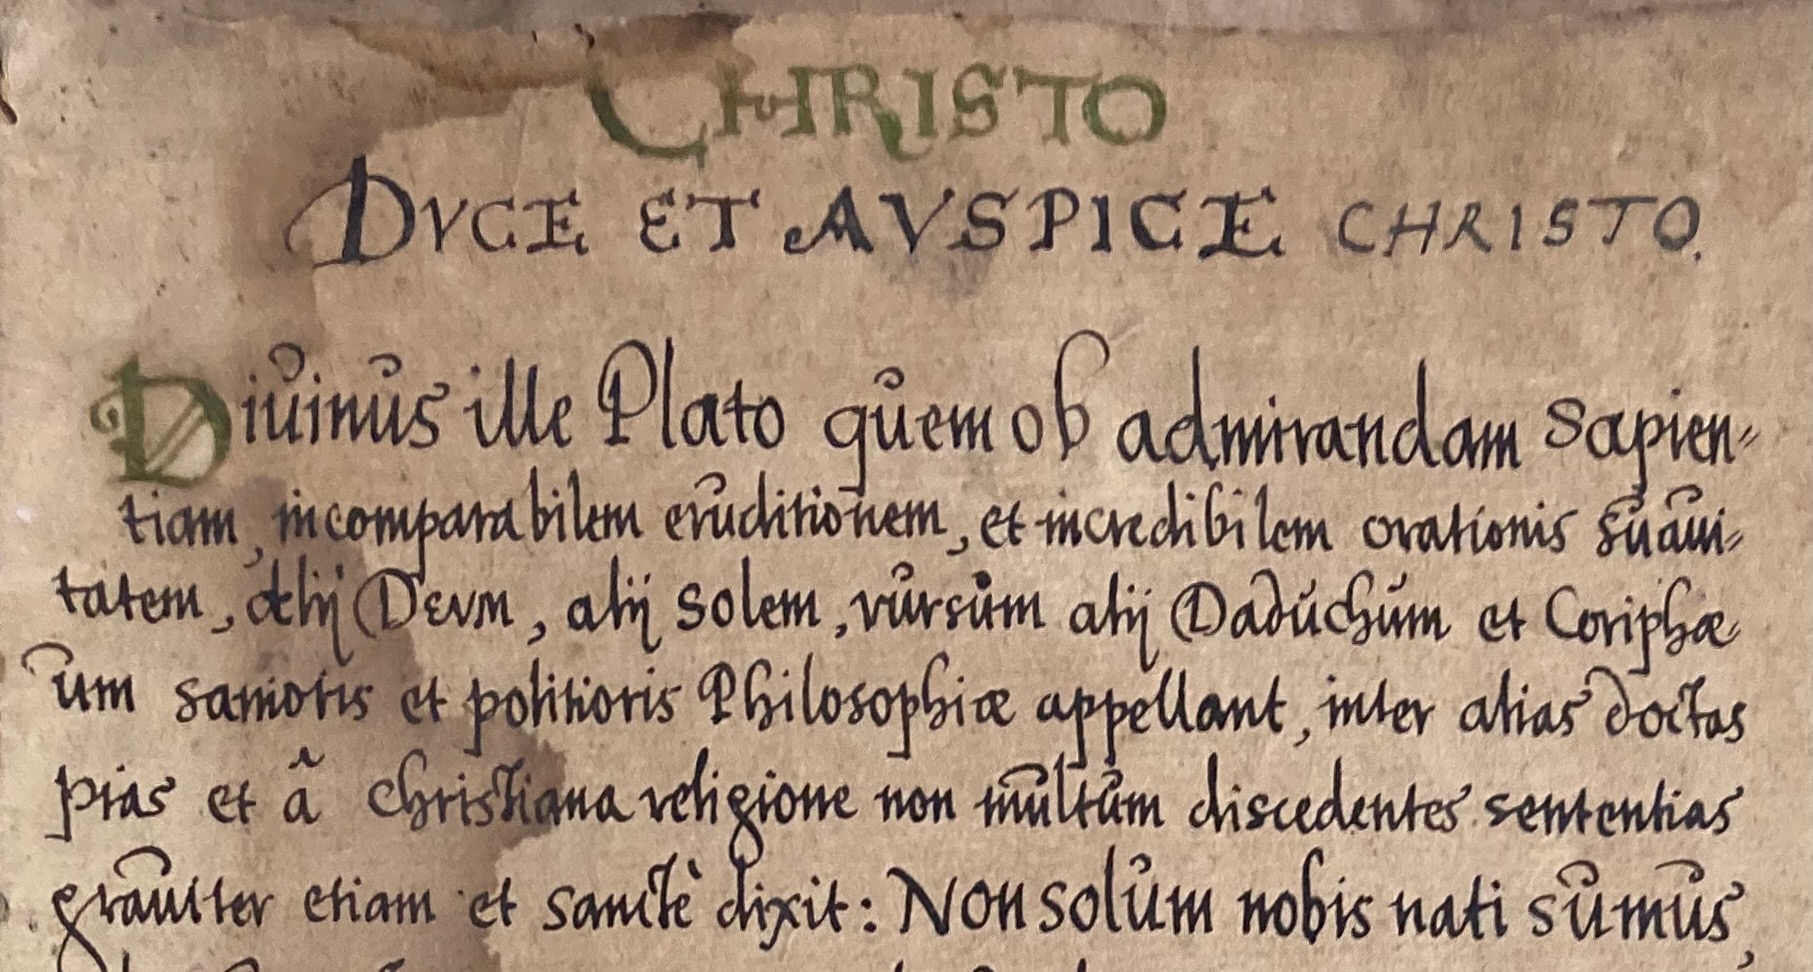 CHRISTO
DVCE ET AVSPICE CHRISTO.
Diuinus ille Plato quem ob admirandam Sapien-
tiam, incomparabilem eruditionem, et incredibilem orationis suaui-
tatem, alij DEVM, alij Solem, rursum alij Daduchum et Coriphæ-
um sanioris et politioris Philosophiæ appellant, inter alias doctas
pias et â Christiana religione non multum discedentes sententias
grauiter etiam et sanctè dixit: Non solum nobis nati sumus,